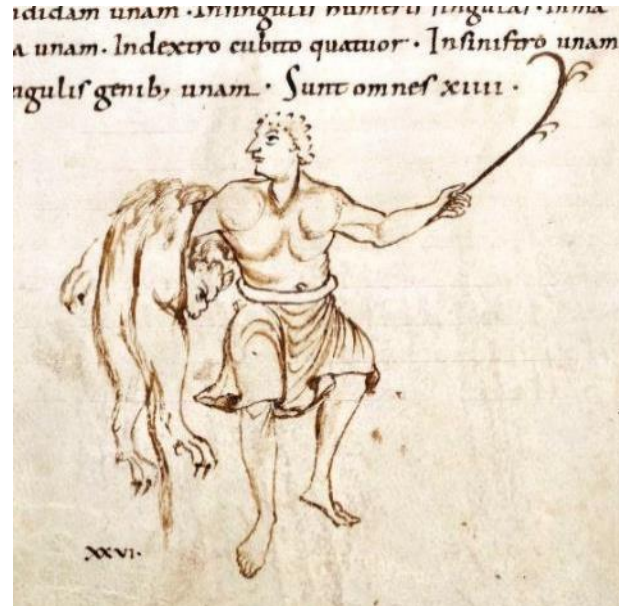 didam unam · Insingulis humeris singulas ·
a unam · Indextro cubito quatuor · Insinistro unam
ngulis genib; unam · Sunt omnes xiiii ·
xxvi ·